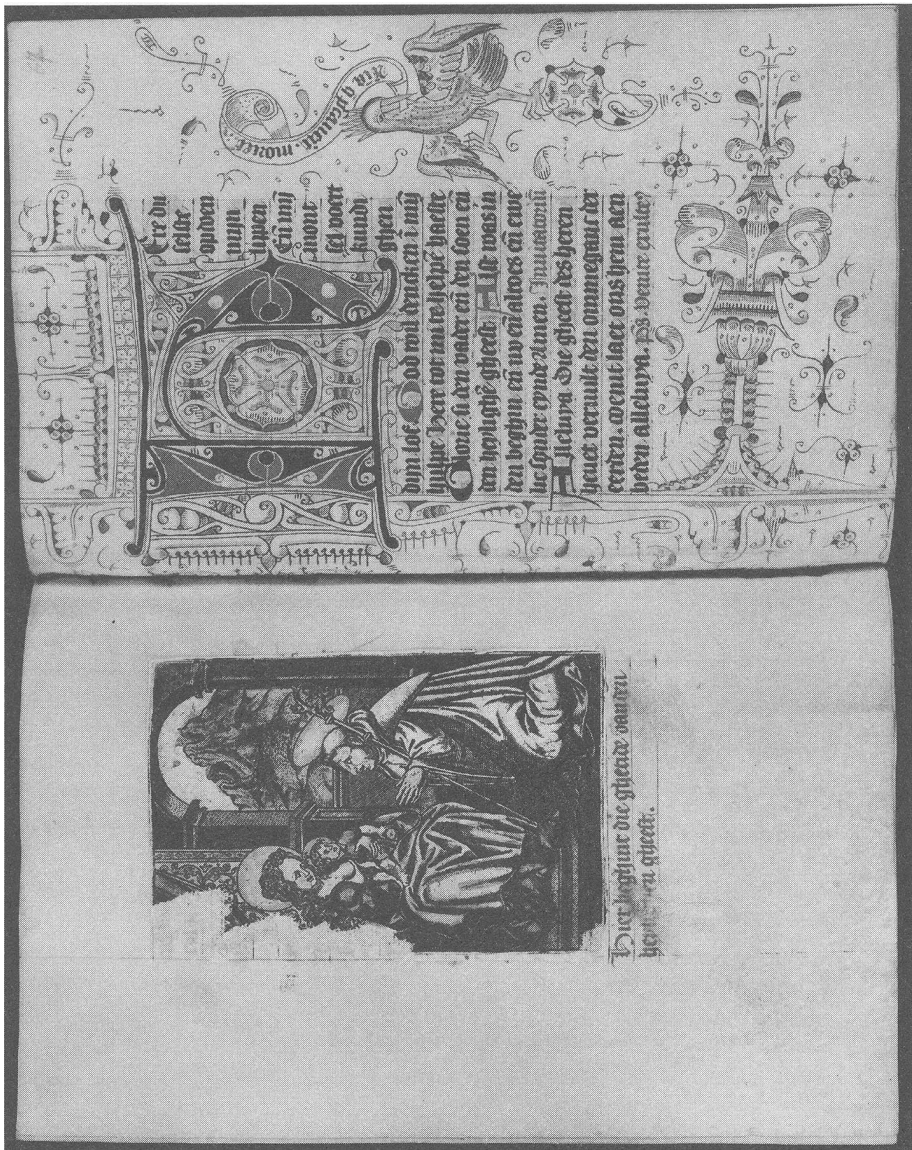 Hier beghint die ghetide vanden
gheest.
HEre du
selste
opdoen
myn
lippen
Eñ mij
mont
sel voert
kundi
ghen
dijn lof. God wil dencken ī mij
hulpe Here tot mi te helpē haeste
Glorie si den vader eñ den soen eñ
den heylighē gheest. Alst was in
den beghin eñ nv eñ altoes eñ ewe
lic sonder eynde Amen. Inuitatoriū
Alleluya Die gheest des heren
heuet veruult den ommeganc der
eerten. laet ons hem aen
beden alleluya. ps. Venite